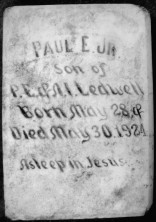 PAUL E. JR.
Son of
P.E. & A.I. Ledwell
Born May 28, &
Died May 30, 1924
Asleep in Jesus.